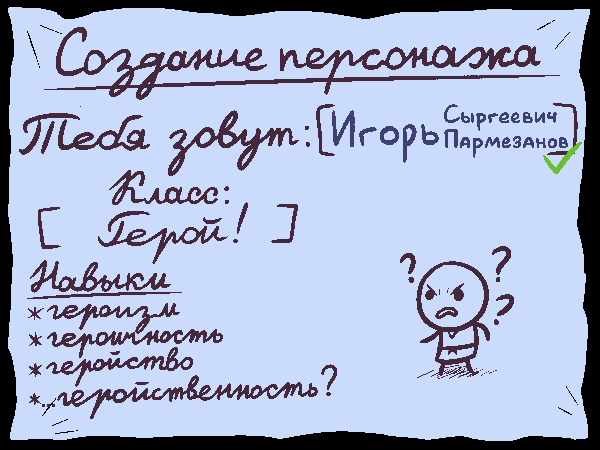 Создание персонажа
Тебя зовут: [Игорь Сыргеевич Пармезанов]
Класс:
[Герой!]
Навыки
*героизм
*героичность
*геройство
*...геройственность?
? ? ?